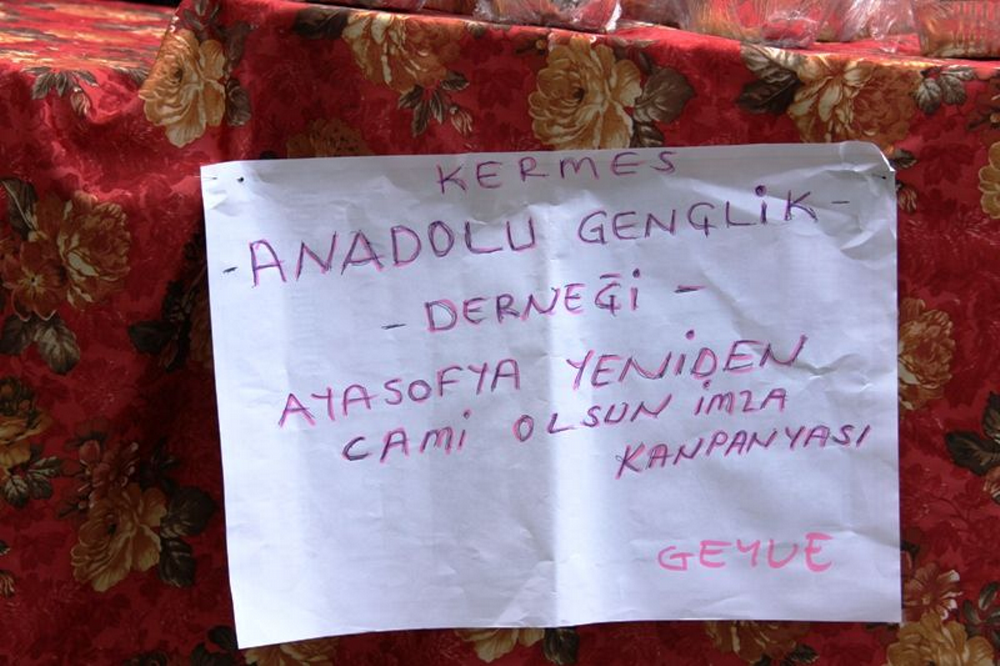 KERMES
- ANADOLU GENÇLİK -
- DERNEĞİ -
AYASOFYA YENİDEN
CAMİ OLSUN İMZA
KANPANYASI
GEYVE